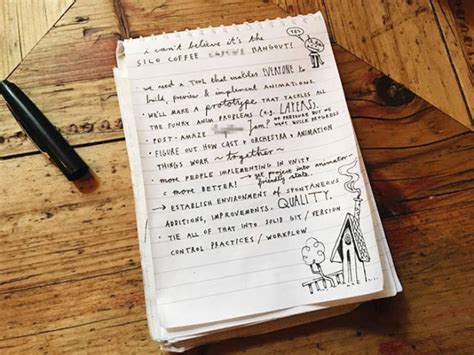 YES!
i can't believe it's the
SILO COFFEE HANGOUT!
• we need a TOOL that enables EVERYONE to
build, preview & implement ANIMATIONS.
• WE'LL MAKE A PROTOTYPE THAT TACKLES ALL
THE FUNKY ANIM PROBLEMS (e.g. LAYERS).
• POST-AMAZE JAM? NO PRESSURE BUT WE
WANT QUICK PROGRESS
• FIGURE OUT HOW CAST + ORCHESTRA + ANIMATION
THINGS WORK ~together~
• MORE PEOPLE IMPLEMENTING IN UNITY
& MORE BETTER! → get project into animator-
friendly state.
→ ESTABLISH ENVIRONMENT OF SPONTANEOUS
ADDITIONS, IMPROVEMENTS. QUALITY.
• TIE ALL OF THAT INTO SOLID GIT / VERSION
CONTROL PRACTICES / WORKFLOW